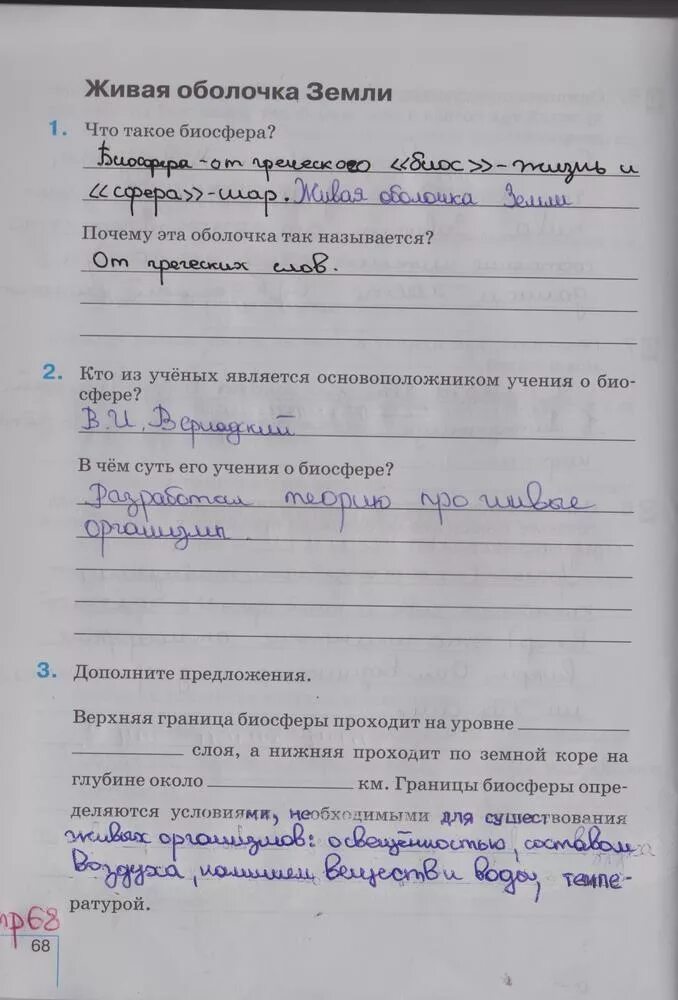 Живая оболочка Земли
1. Что такое биосфера?
Биосфера - от греческого «биос» - жизнь и
«сфера» - шар. Живая оболочка Земли
Почему эта оболочка так называется?
От греческих слов.
2. Кто из учёных является основоположником учения о био-
сфере?
В.И. Вернадкий
В чём суть его учения о биосфере?
Разработал теорию про живые
организмы.
3. Дополните предложения.
Верхняя граница биосферы проходит на уровне
слоя, а нижняя проходит по земной коре на
глубине около км. Границы биосферы опре-
деляются условиями, необходимыми для существования
живых организмов: освещённостью, составом
воздуха, веществ и воды, темпе-
ратурой.
стр68
68